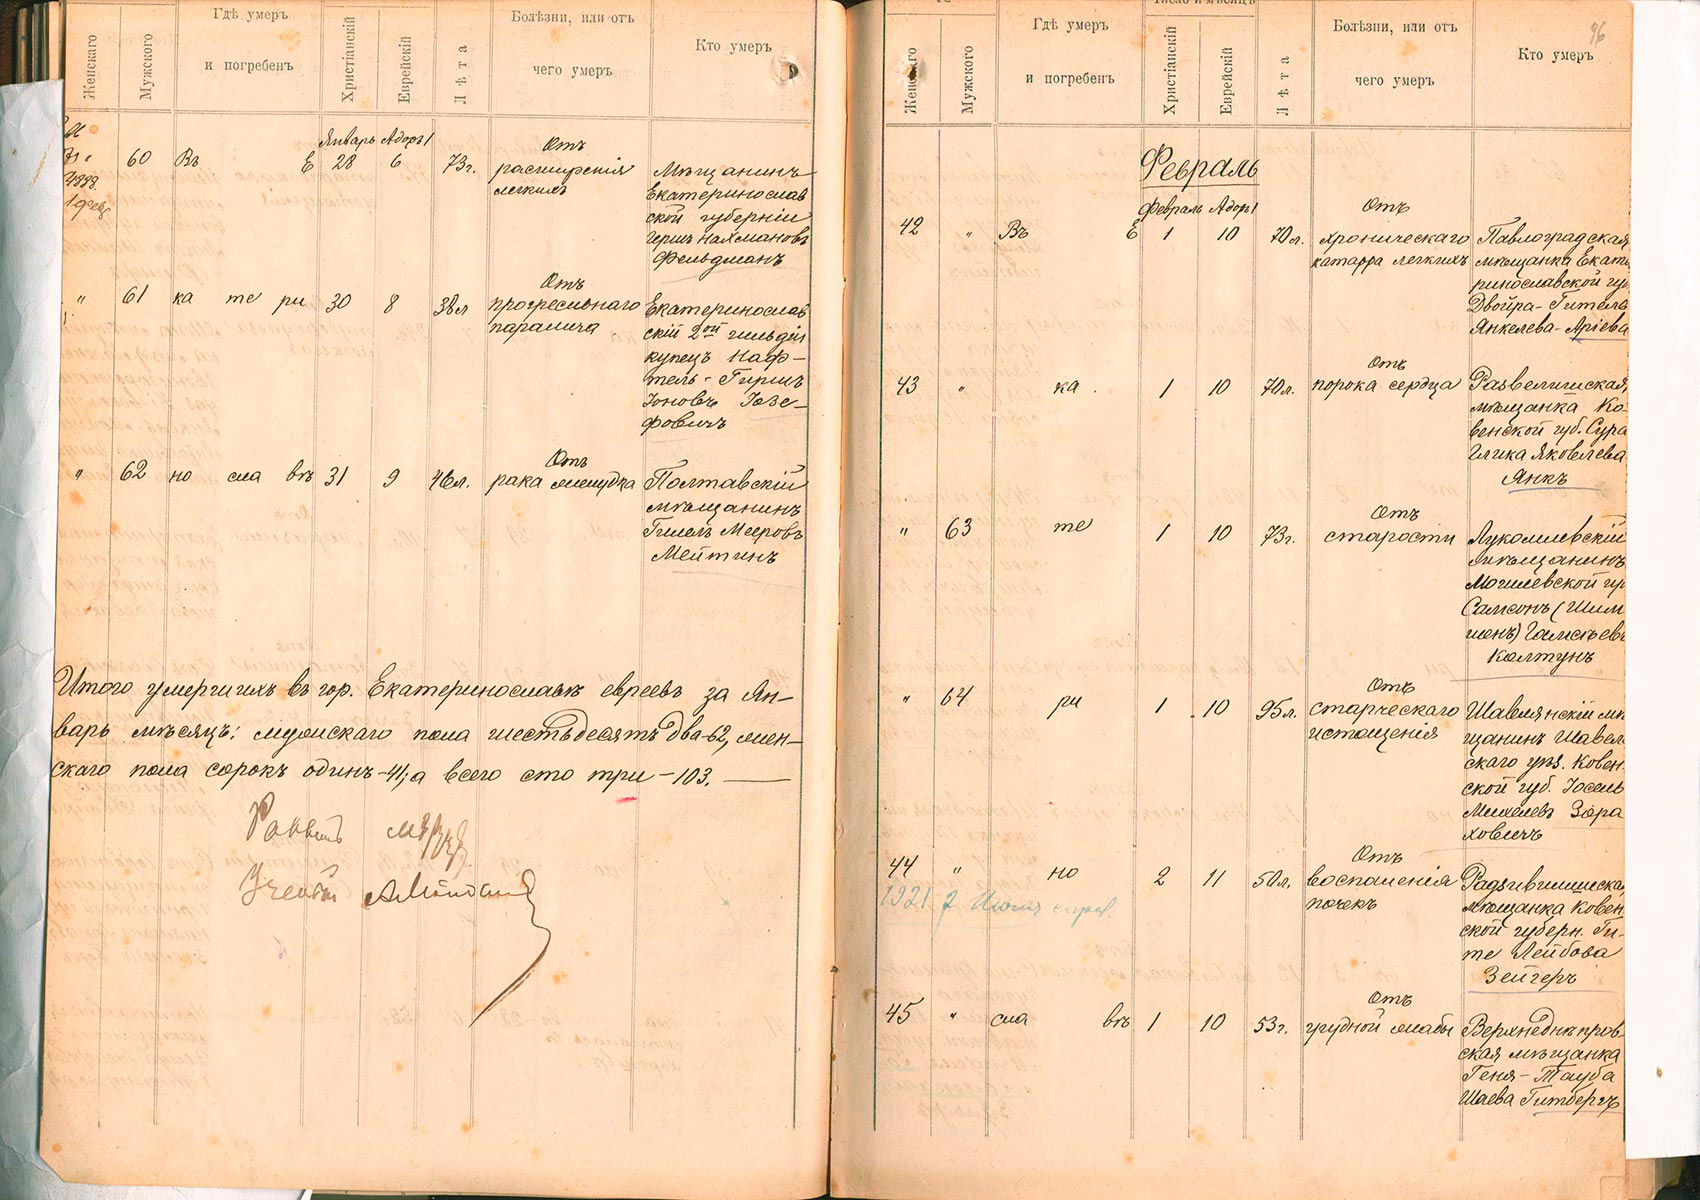 Женскаго
Мужского
Гдѣ умеръ
и погребенъ
Христіанскій
Еврейскій
Лѣта
Болѣзни, или отъ
чего умеръ
Кто умеръ
Январь Адоръ I
60 Въ Е 28 6 73 г.
Отъ
расширенія
легкихъ
Мѣщанинъ
Екатеринослав
ской губерніи
Гершъ Нахмановъ
Фельдманъ
" 61 ка те ри 30 8 38 л
Отъ
прогресивнаго
паралича
Екатеринослав
скій 2ой гильдіи
купецъ Наф-
тель-Гиршъ
Іоновъ Іозе-
фовичъ
" 62 но сла вѣ 31 9 46 л.
Отъ
рака желудка
Полтавскій
мѣщанинъ
Гилель Мееровъ
Мейтинъ
Итого умершихъ въ гор. Екатеринославѣ евреевъ за Ян-
варь мѣсяцъ: мужскаго пола шестьдесятъ два-62, жен-
скаго пола сорокъ одинъ-41, а всего сто три-103.
Раввинъ
Ученый
96
Женскаго
Мужского
Гдѣ умеръ
и погребенъ
Число и мѣсяцъ
Христіанскій
Еврейскій
Лѣта
Болѣзни, или отъ
чего умеръ
Кто умеръ
Февраль
Февраль Адоръ I
42 " Въ Е 1 10 70 л.
Отъ
хроническаго
катарра легкихъ
Павлоградская
мѣщанка Екате
ринославской гу
Двойра-Гитела
Янкелева-Аріева
43 " ка 1 10 70 л.
Отъ
порока сердца
Развелишская
мѣщанка Ко-
венской губ. Сура
Глика Яковлева
Янкъ
" 63 те 1 10 73 г.
Отъ
старости
Лукомлевскій
мѣщанинъ
Могилевской гу
Самсонъ (Шим
шонъ)
Колтунъ
" 64 ри 1 10 95 л.
Отъ
старческаго
истощенія
Шавлянскій мѣ
щанинъ Шавел
скаго уѣз. Ковен
ской губ. Іосель
Михелевъ Зора
ховичъ
44 " но 2 11 50 л.
Отъ
воспаленія
почекъ
Радзивилишская
мѣщанка Ковен
ской губерн. Ги-
те Лейбова
Зейгеръ
1921 7 Июня справ.
45 " сла вѣ 1 10 53 г.
Отъ
грудной жабы
Верхнеднѣпров
ская мѣщанка
Геня-Тауба
Шаева Гитбергъ